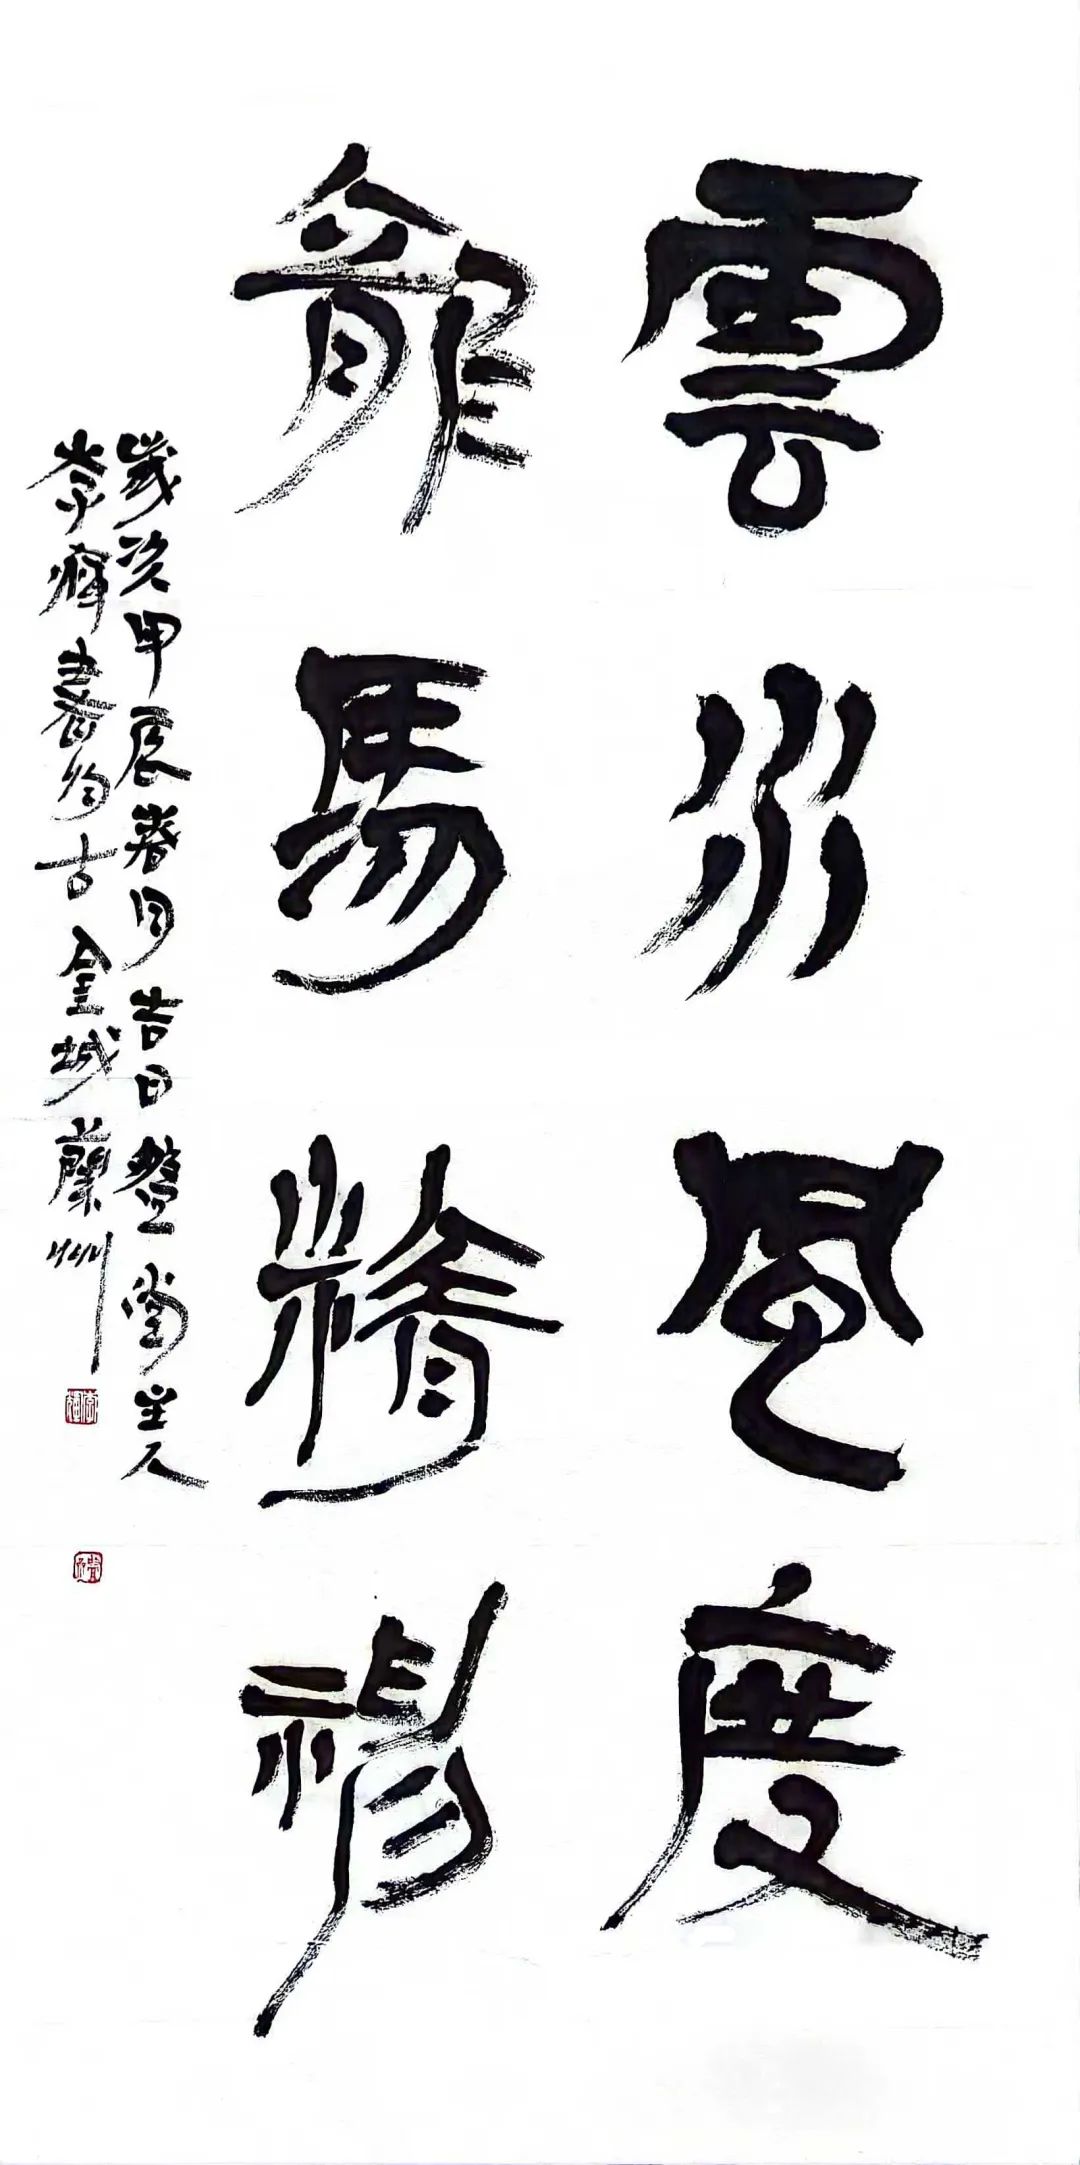 雲水風度
龍馬精神
歲次甲辰春月吉日堂主人
李書於古金城蘭州